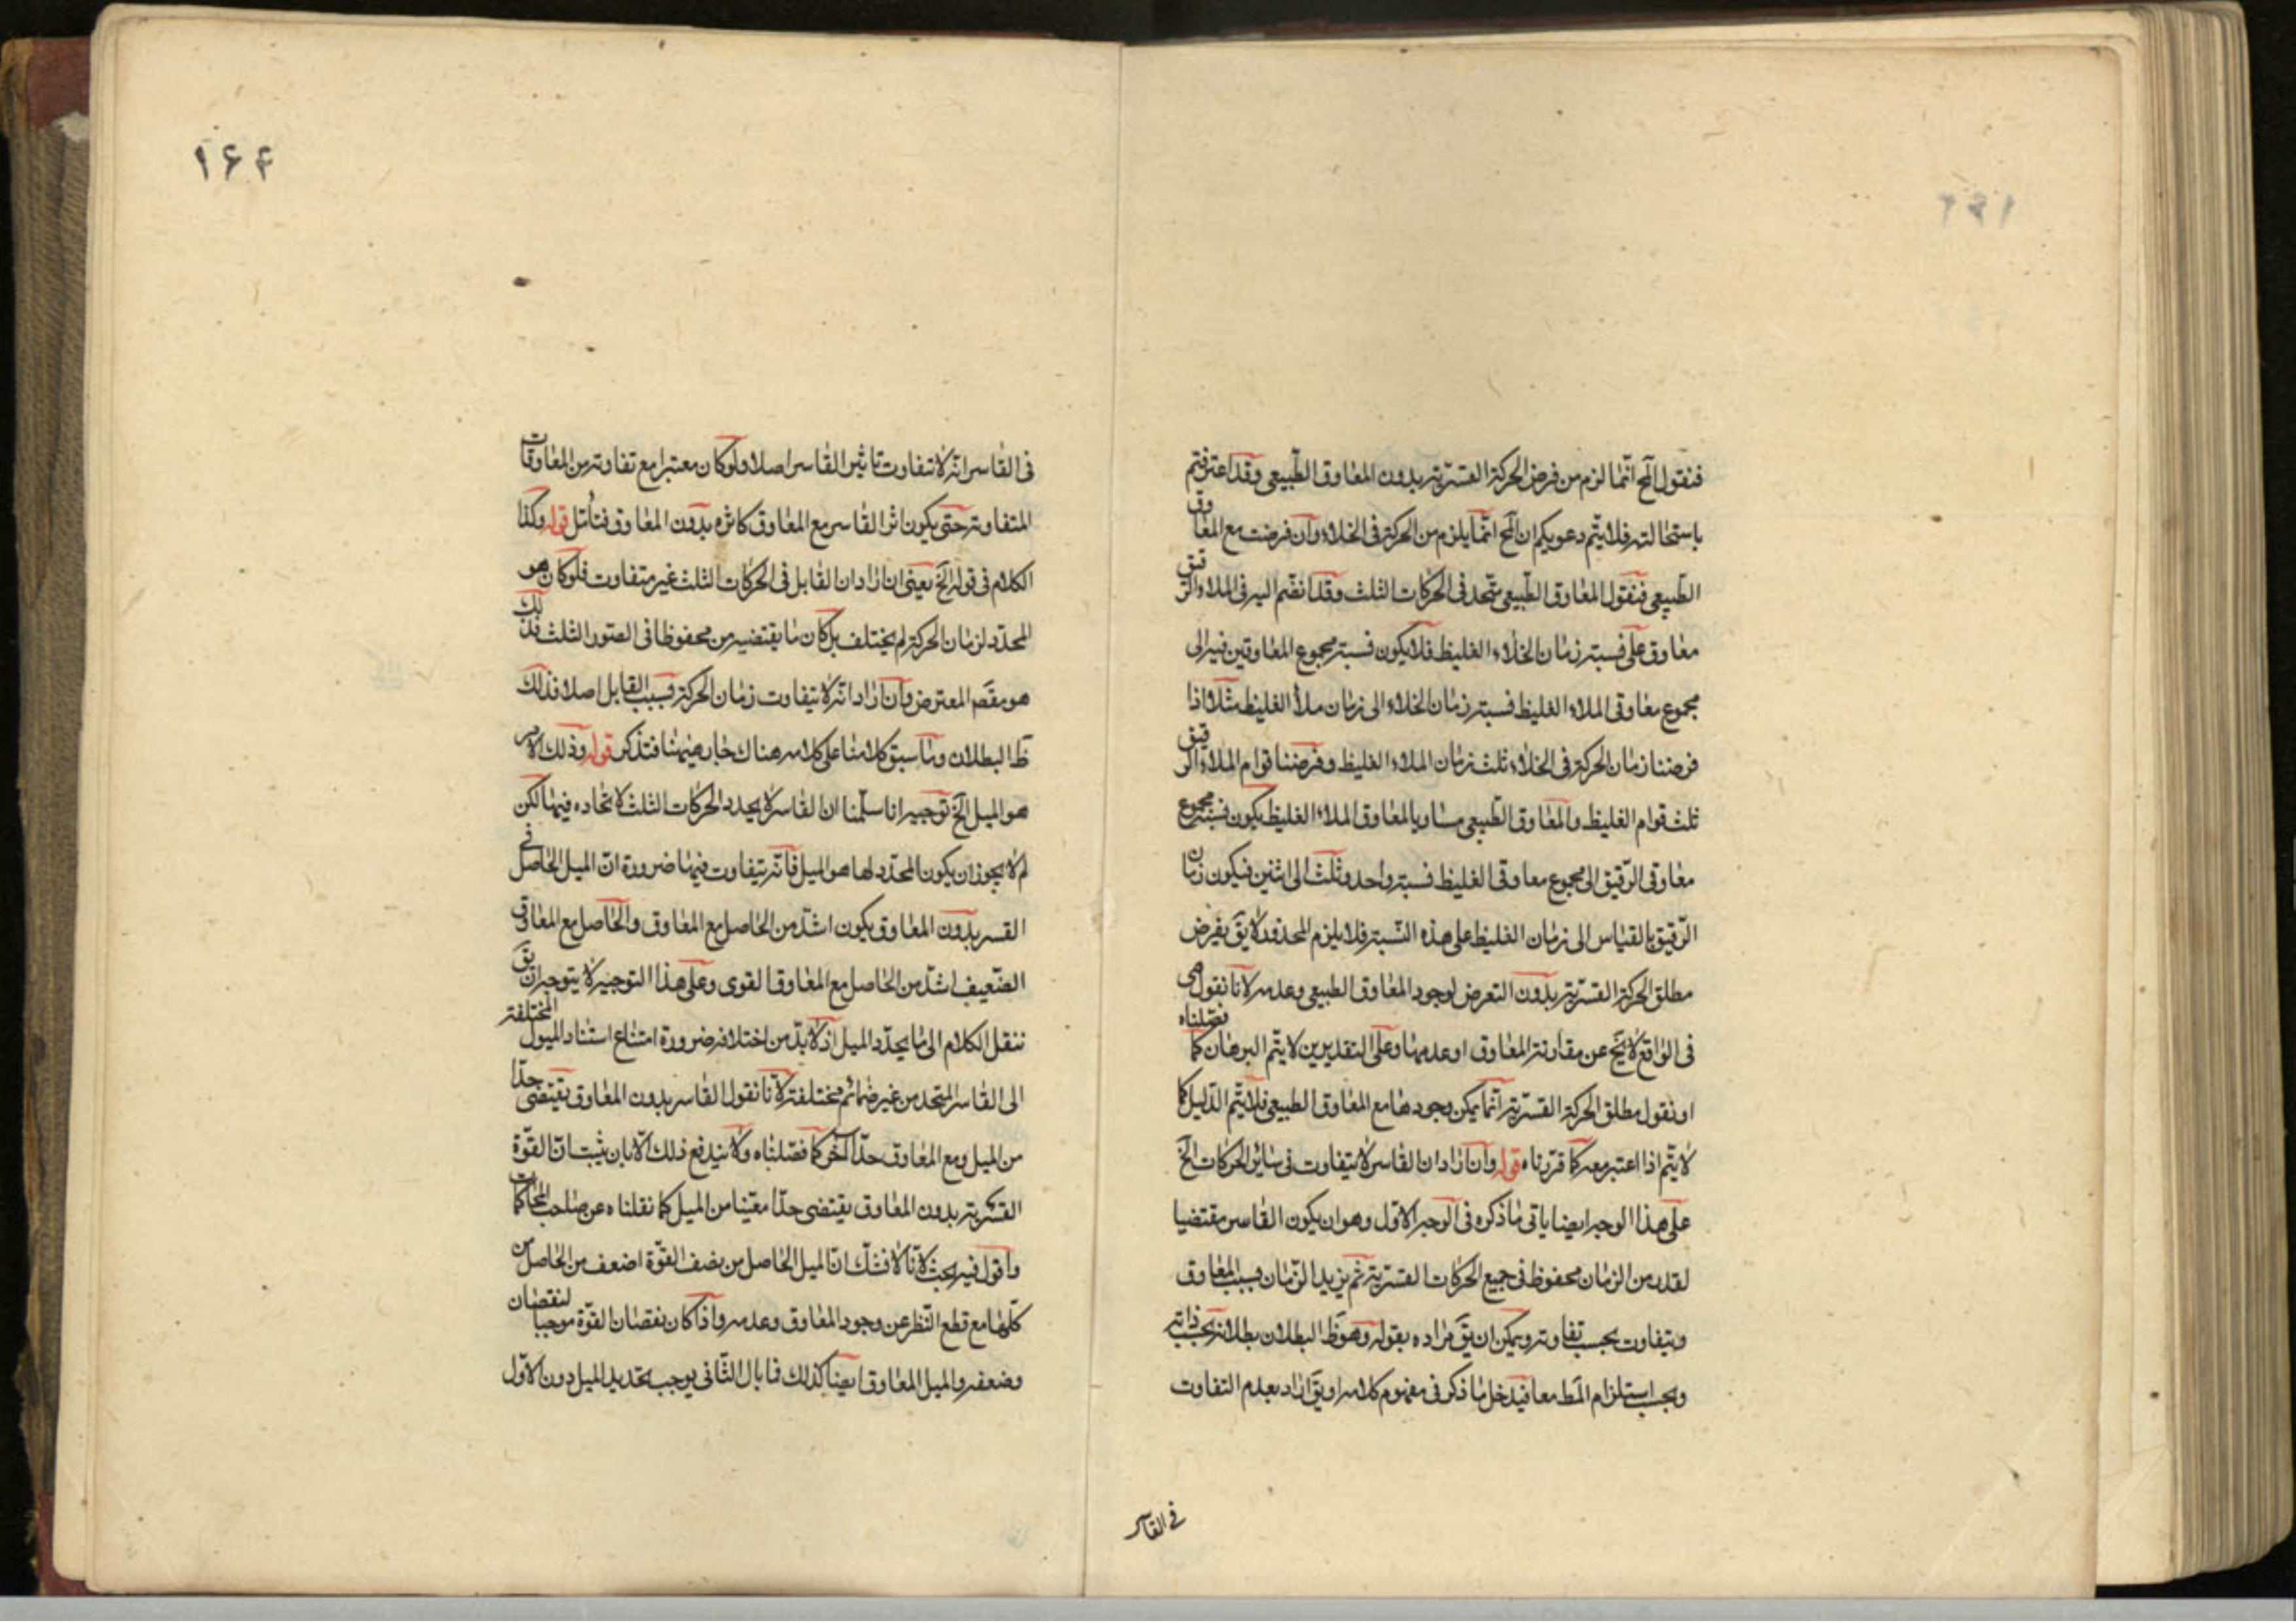 فنقول المح انما لزم من فرض الحركة القسرية بدون المعاوق الطبيعى وقد اعترفتم
باستحالته فلا يتم دعويكم ان المح انما يلزم من الحركة فى الخلاء وان فرضت مع المعاوق
الطبيعى فنقول المعاوق الطبيعى متحد فى الحركات الثلث وقد انضم اليه فى الملاء الرقيق
معاوق على نسبة زمان الخلاء الغليظ فلا يكون نسبة مجموع المعاوقين فيه الى
مجموع معاوقى الملاء الغليظ نسبة زمان الخلاء الى زمان ملأ الغليظ مثلا اذا
فرضنا زمان الحركة فى الخلاء ثلث زمان الملاء الغليظ وفرضنا قوام الملاء الرقيق
ثلث قوام الغليظ والمعاوق الطبيعى مساويا لمعاوق الملاء الغليظ يكون نسبة مجموع
معاوقى الرقيق الى مجموع معاوقى الغليظ نسبة واحد وثلث الى اثنين فيكون زمان
الرقيق بالقياس الى زمان الغليظ على هذه النسبة فلا يلزم المحذور لا يق نفرض
مطلق الحركة القسرية بدون التعرض لوجود المعاوق الطبيعى وعدمه لانا نقول هى
فى الواقع لا يخ عن مقارنة المعاوق او عدمها وعلى التقديرين لا يتم البرهان كما فصلناه
او نقول مطلق الحركة القسرية انما يمكن وجودها مع المعاوق الطبيعى فلا يتم الدليل كما
لا يتم اذا اعتبر معه كما قررناه قوله وان اراد ان القاسر لا يتفاوت فى سائر الحركات الخ
على هذا الوجه ايضا ياتى ما ذكره فى الوجه الاول وهو ان يكون القاسر مقتضيا
لقدر من الزمان محفوظ فى جميع الحركات القسرية ثم يزيد الزمان بسبب المعاوق
ويتفاوت بحسب تفاوته ويمكن ان يق مراده بقوله وهو ظ البطلان بطلانه بحسب ذاته
وبحسب استلزام المط معا فيدخل ما ذكر فى مفهوم كلامه او يق اراد بعدم التفاوت
فى القاسر
١۶۴
فى القاسر انه لا تتفاوت تاثير القاسر اصلا ولو كان معتبرا مع تفاوته من المعاوقات
المتفاوتة حتى يكون اثر القاسر مع المعاوق كاثره بدون المعاوق فتأمل قوله وكذا
الكلام فى قوله الخ يعنى ان اراد ان القابل فى الحركات الثلث غير متفاوت فلو كان هو
المحدد لزمان الحركة لم يختلف بل كان ما يقتضيه من محفوظا فى الصور الثلث فذلك
هو مقصد المعترض وان اراد انه لا يتفاوت زمان الحركة بسبب القابل اصلا فذلك
ظ البطلان وما سبق كلامنا على كلامه هناك جار هيهنا فتذكر قوله وذلك الامر
هو الميل الخ توجيهه انا سلمنا ان القاسر لا يحدد الحركات الثلث لاتحاده فيها لكن
لم لا يجوز ان يكون المحدد لها هو الميل فانه يتفاوت فيها ضرورة ان الميل الحاصل فى
القسر بدون المعاوق يكون اشد من الحاصل مع المعاوق والحاصل مع المعاوق
الضعيف اشد من الحاصل مع المعاوق القوى وعلى هذا التوجيه لا يتوجه ان يق
ننقل الكلام الى ما يحدد الميل اذ لا بد من اختلافه ضرورة امتناع استناد الميول المختلفة
الى القاسر المتحد من غير ضمائم مختلفة لانا نقول القاسر بدون المعاوق يقتضى حدا
من الميل ومع المعاوق حدا آخر كما فصلناه ولا يندفع ذلك الا بان يثبت ان القوة
القسرية بدون المعاوق يقتضى حدا معينا من الميل كما نقلناه عن صاحب المحاكمات
واقول فيه بحث لانا لا نشك ان الميل الحاصل من نصف القوة اضعف من الحاصل من
كلها مع قطع النظر عن وجود المعاوق وعدمه واذا كان نقصان القوة موجبا لنقصان
وضعفه والميل المعاوق ايضا كذلك فما بال الثانى يوجب تحديد الميل دون الاول